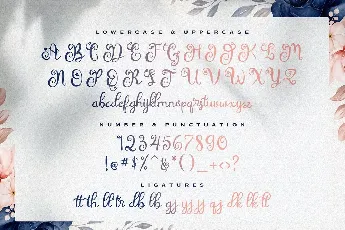 LOWERCASE & UPPERCASE
A B C D E F G H I J K L M
N O P Q R S T U V W X Y Z
abcdefghijklmnopqrstuvwxyz
NUMBER & PUNCTUATION
1234567890
!@#$%^&*()_-+<>?
LIGATURES
tt th ll tr